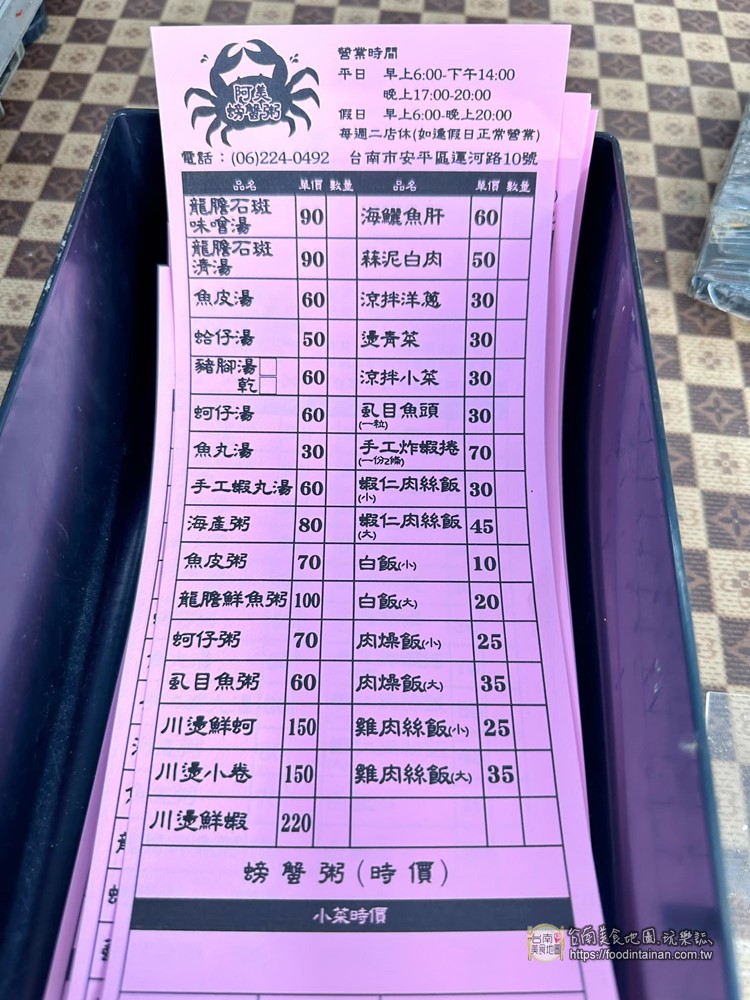 阿美
螃蟹粥
營業時間
平日 早上6:00-下午14:00
晚上17:00-20:00
假日 早上6:00-晚上20:00
每週二店休(如逢假日正常營業)
電話：(06)224-0492 台南市安平區運河路10號
品名 單價 數量 品名 單價 數量
龍膽石斑味噌湯 90 海鱺魚肝 60
龍膽石斑清湯 90 蒜泥白肉 50
魚皮湯 60 涼拌洋蔥 30
蛤仔湯 50 燙青菜 30
豬腳湯□ 乾□ 60 涼拌小菜 30
蚵仔湯 60 虱目魚頭(一粒) 30
魚丸湯 30 手工炸蝦捲(一份2條) 70
手工蝦丸湯 60 蝦仁肉絲飯(小) 30
海產粥 80 蝦仁肉絲飯(大) 45
魚皮粥 70 白飯(小) 10
龍膽鮮魚粥 100 白飯(大) 20
蚵仔粥 70 肉燥飯(小) 25
虱目魚粥 60 肉燥飯(大) 35
川燙鮮蚵 150 雞肉絲飯(小) 25
川燙小卷 150 雞肉絲飯(大) 35
川燙鮮蝦 220
螃蟹粥(時價)
小菜時價
台南美食地圖
台南美食地圖.玩樂誌.
https://foodintainan.com.tw